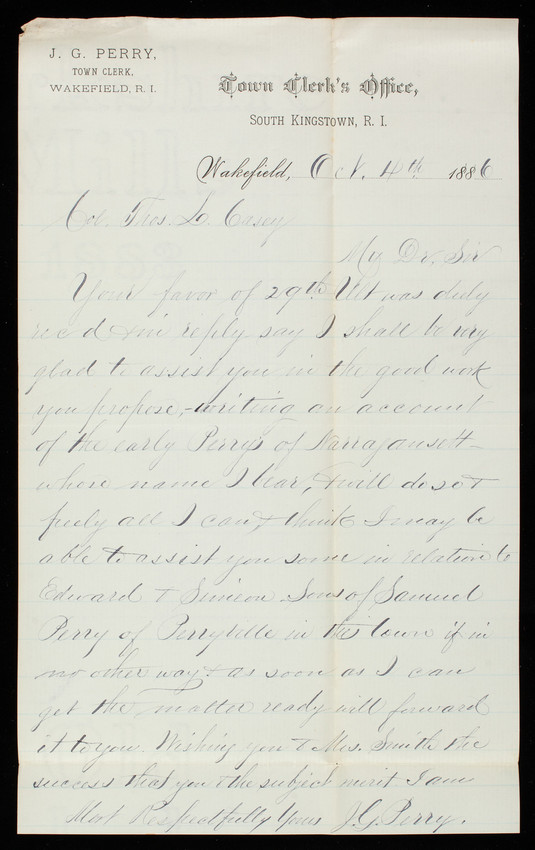 J. G. PERRY,
TOWN CLERK,
WAKEFIELD, R. I.
Town Clerk's Office,
SOUTH KINGSTOWN, R. I.
Wakefield, Oct. 4th 1886
Col. Thos. L. Casey
My Dr. Sir
Your favor of 29th Ult was duly
rec'd & in reply say I shall be very
glad to assist you in the good work
you propose,- writing an account
of the early Perrys of Narragansett -
whose name I bear, & will do so &
freely all I can, & think I may be
able to assist you some in relation to
Edward & Simeon Sons of Samuel
Perry of Perryville in this town if in
no other way & as soon as I can
get the matter ready will forward
it to you. Wishing you & Mrs. Smith the
success that you & the subject merit I am
Most Respectfully Yours J. G. Perry.